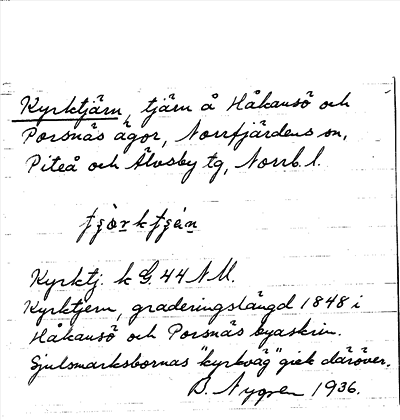 Kyrktjärn, tjärn å Håkansö och
Porsnäs ägor, Norrfjärdens sn,
Piteå och Älvsby tg, Norrb. l.
Kyrktj. k G. 44 N M.
Kyrktjern, graderingslängd 1848 i
Håkansö och Porsnäs byaskrin.
Sjulsmarksbornas "kyrkväg" gick däröver.
D. Nygren 1936.